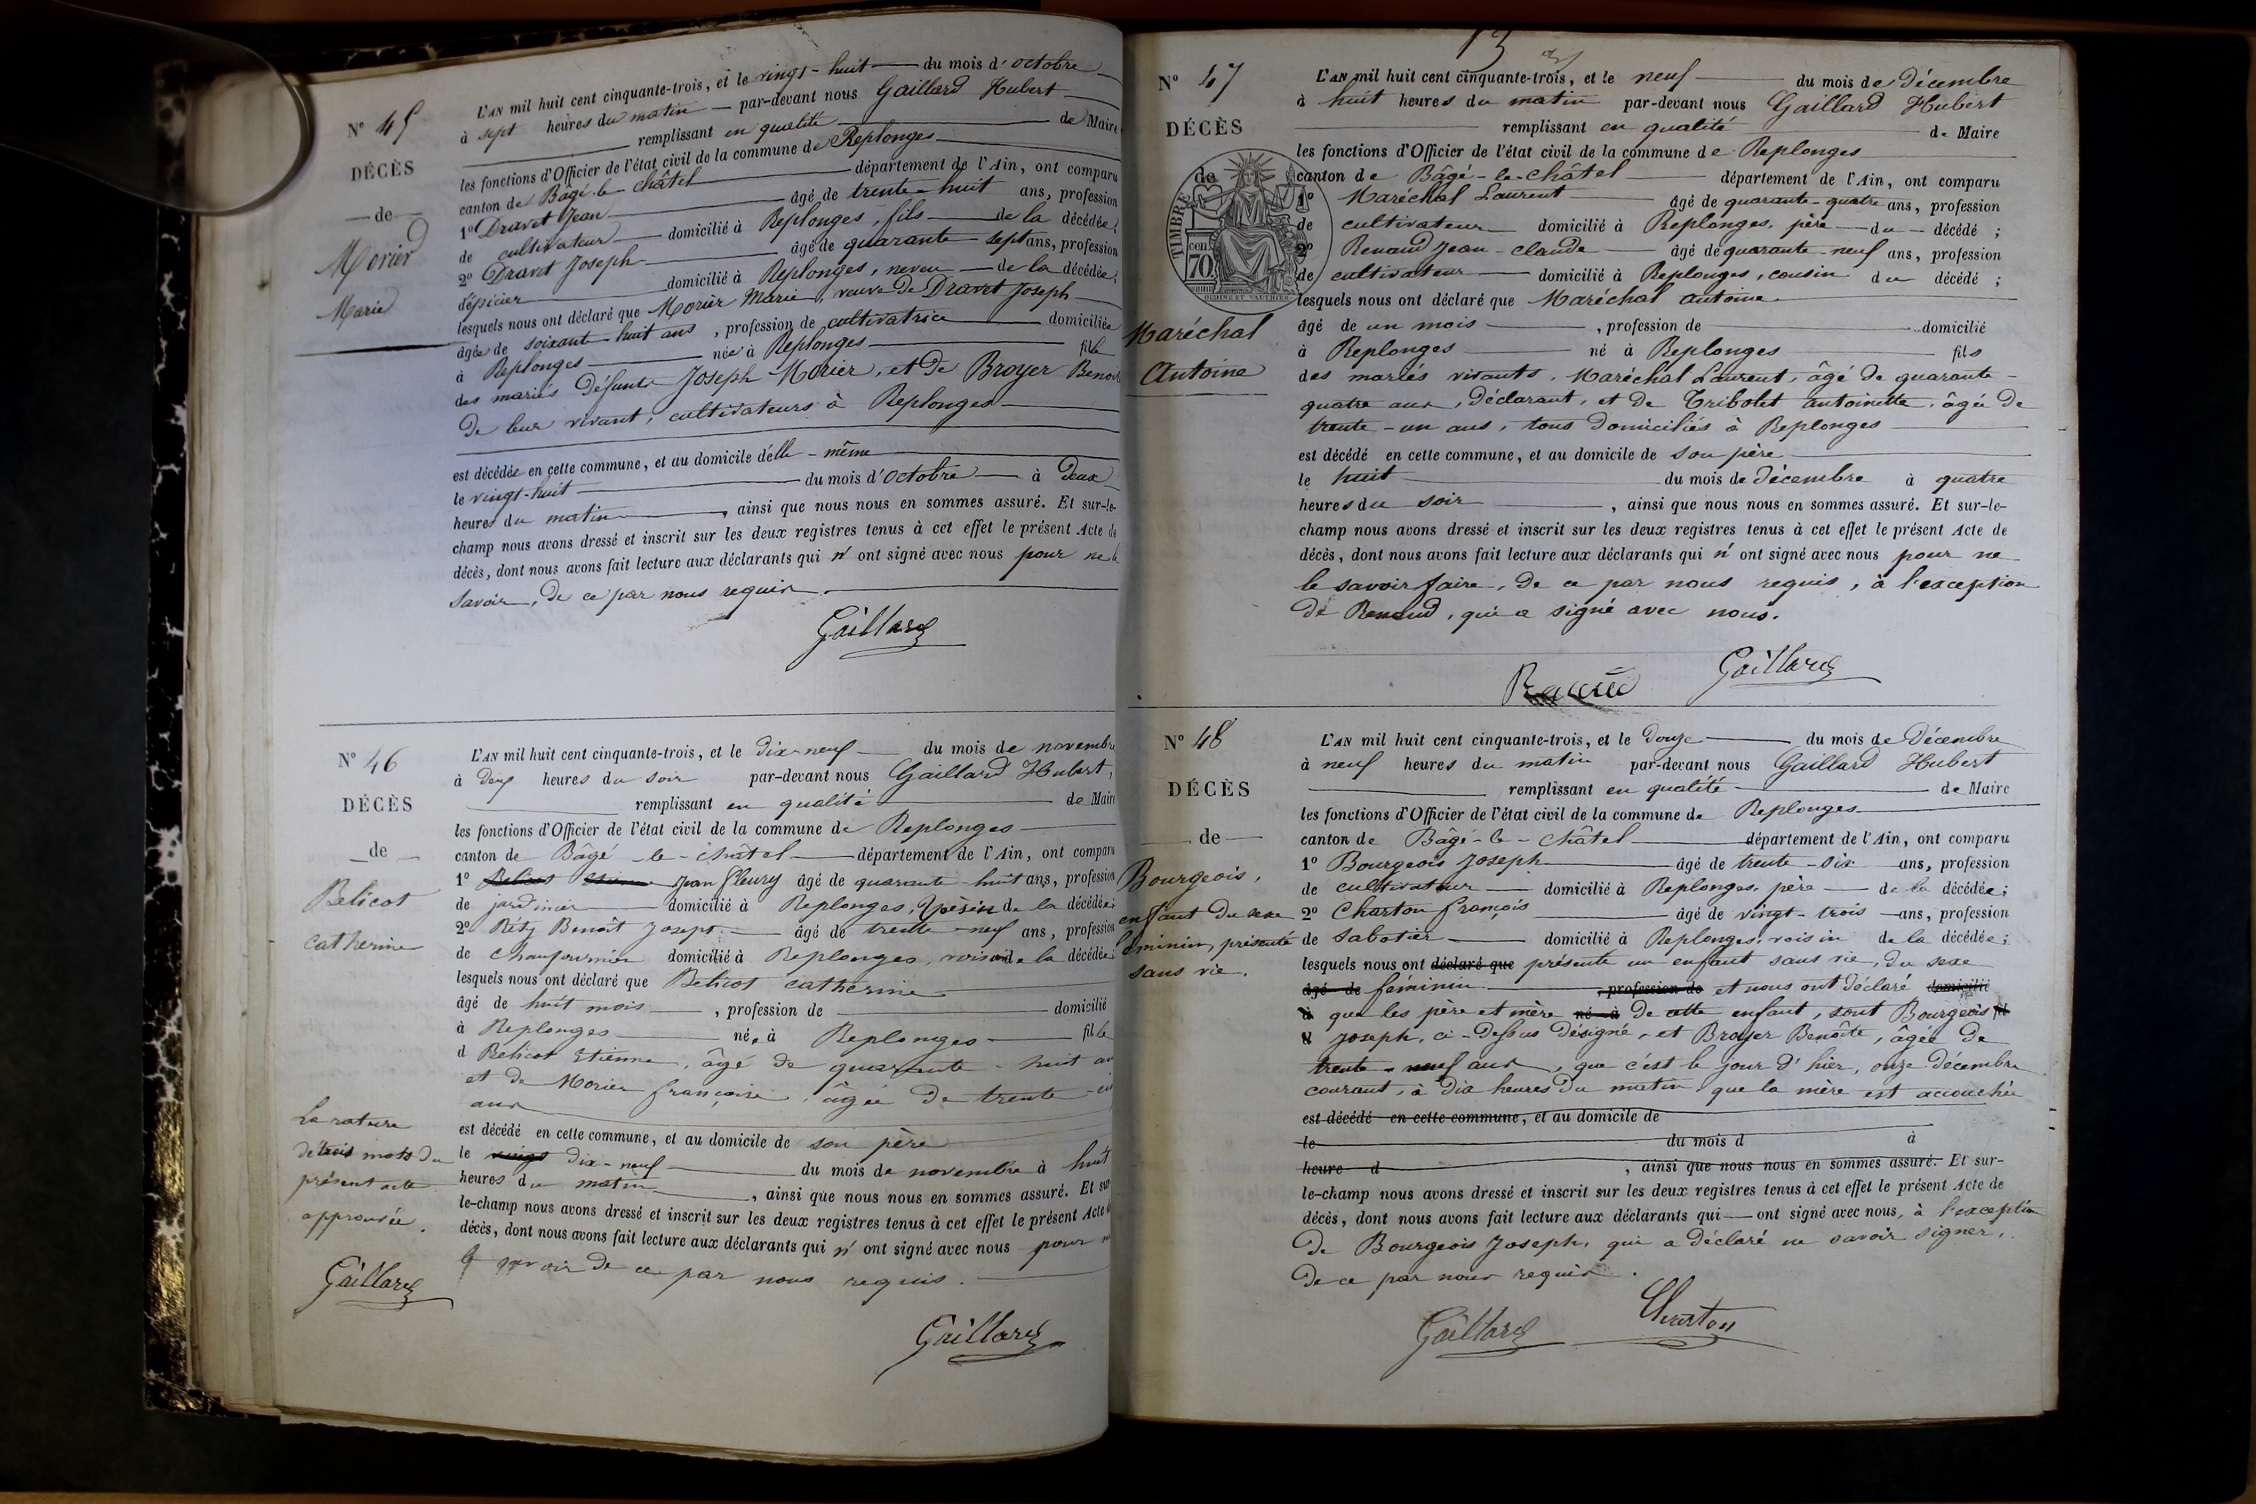 N° 45
DÉCÈS
de
Morier
Marie
L'AN mil huit cent cinquante-trois, et le vingt-huit du mois d'octobre
à sept heures du matin par-devant nous Gaillard Hubert
remplissant en qualité de Maire
les fonctions d'Officier de l'état civil de la commune de Replonges
canton de Bâgé-le-châtel département de l'Ain, ont comparu
1° Dravet Jean âgé de trente-huit ans, profession
de cultivateur domicilié à Replonges, fils de la décédée;
2° Dravet Joseph âgé de quarante-sept ans, profession
d'épicier domicilié à Replonges, neveu de la décédée;
lesquels nous ont déclaré que Morier Marie, veuve de Dravet Joseph
âgée de soixante-huit ans, profession de cultivatrice domiciliée
à Replonges née à Replonges fille
des mariés défunts Joseph Morier, et de Broyer Benoîte
de leur vivant, cultivateurs à Replonges
est décédée en cette commune, et au domicile d'elle-même
le vingt-huit du mois d'octobre à deux
heures du matin, ainsi que nous nous en sommes assuré. Et sur-le-
champ nous avons dressé et inscrit sur les deux registres tenus à cet effet le présent Acte de
décès, dont nous avons fait lecture aux déclarants qui n'ont signé avec nous pour ne le
savoir, de ce par nous requis.
Gaillard
N° 46
DÉCÈS
de
Belicot
catherine
La rature
de trois mots du
présent acte
approuvée.
Gaillard
L'AN mil huit cent cinquante-trois, et le dix-neuf du mois de novembre
à deux heures du soir par-devant nous Gaillard Hubert,
remplissant en qualité de Maire
les fonctions d'Officier de l'état civil de la commune de Replonges
canton de Bâgé-le-châtel département de l'Ain, ont comparu
1° Belicot Jean fleury âgé de quarante-huit ans, profession
de jardinier domicilié à Replonges, de la décédée;
2° Réty Benoît Joseph âgé de trente-neuf ans, profession
de chaufournier domicilié à Replonges, voisin de la décédée;
lesquels nous ont déclaré que Belicot catherine
âgé de huit mois, profession de domicilié
à Replonges né à Replonges fille
d Belicot Etienne, âgé de quarante-huit ans
et de Morier françoise, âgée de trente
ans
est décédé en cette commune, et au domicile de son père
le vingt dix-neuf du mois de novembre à huit
heures du matin, ainsi que nous nous en sommes assuré. Et sur-
le-champ nous avons dressé et inscrit sur les deux registres tenus à cet effet le présent Acte de
décès, dont nous avons fait lecture aux déclarants qui n'ont signé avec nous pour ne
le savoir de ce par nous requis.
Gaillard
13
N° 47
DÉCÈS
de
TIMBRE
cen 70
Maréchal
Antoine
L'AN mil huit cent cinquante-trois, et le neuf du mois de Décembre
à huit heures du matin par-devant nous Gaillard Hubert
remplissant en qualité de Maire
les fonctions d'Officier de l'état civil de la commune de Replonges
canton de Bâgé-le-châtel département de l'Ain, ont comparu
1° Maréchal Laurent âgé de quarante-quatre ans, profession
de cultivateur domicilié à Replonges, père du décédé;
2° Renaud Jean-claude âgé de quarante-neuf ans, profession
de cultivateur domicilié à Replonges, cousin du décédé;
lesquels nous ont déclaré que Maréchal antoine
âgé de un mois, profession de domicilié
à Replonges né à Replonges fils
des mariés vivants, Maréchal Laurent, âgé de quarante-
quatre ans, déclarant, et de Tribolet antoinette, âgée de
trente-un ans, tous domiciliés à Replonges
est décédé en cette commune, et au domicile de son père
le huit du mois de décembre à quatre
heures du soir, ainsi que nous nous en sommes assuré. Et sur-le-
champ nous avons dressé et inscrit sur les deux registres tenus à cet effet le présent Acte de
décès, dont nous avons fait lecture aux déclarants qui n'ont signé avec nous pour ne
le savoir faire, de ce par nous requis, à l'exception
de Renaud, qui a signé avec nous.
Renaud Gaillard
N° 48
DÉCÈS
de
Bourgeois,
enfant du sexe
féminin, présenté
sans vie.
L'AN mil huit cent cinquante-trois, et le douze du mois de Décembre
à neuf heures du matin par-devant nous Gaillard Hubert
remplissant en qualité de Maire
les fonctions d'Officier de l'état civil de la commune de Replonges
canton de Bâgé-le-châtel département de l'Ain, ont comparu
1° Bourgeois Joseph âgé de trente-six ans, profession
de cultivateur domicilié à Replonges, père de la décédée;
2° Charton françois âgé de vingt-trois ans, profession
de sabotier domicilié à Replonges, voisin de la décédée;
lesquels nous ont déclaré que présenté un enfant sans vie, du sexe
âgé de féminin, profession de et nous ont déclaré domicilié
à que les père et mère né à de cette enfant, sont Bourgeois fil
d Joseph, ci-dessus désigné, et Broyer Benoîte, âgée de
trente-neuf ans, que c'est le jour d'hier, onze décembre
courant, à dix heures du matin que la mère est accouchée
est décédé en cette commune, et au domicile de
le du mois d à
heure d, ainsi que nous nous en sommes assuré. Et sur-
le-champ nous avons dressé et inscrit sur les deux registres tenus à cet effet le présent Acte de
décès, dont nous avons fait lecture aux déclarants qui ont signé avec nous, à l'exception
de Bourgeois Joseph, qui a déclaré ne savoir signer,
de ce par nous requis.
Gaillard Charton